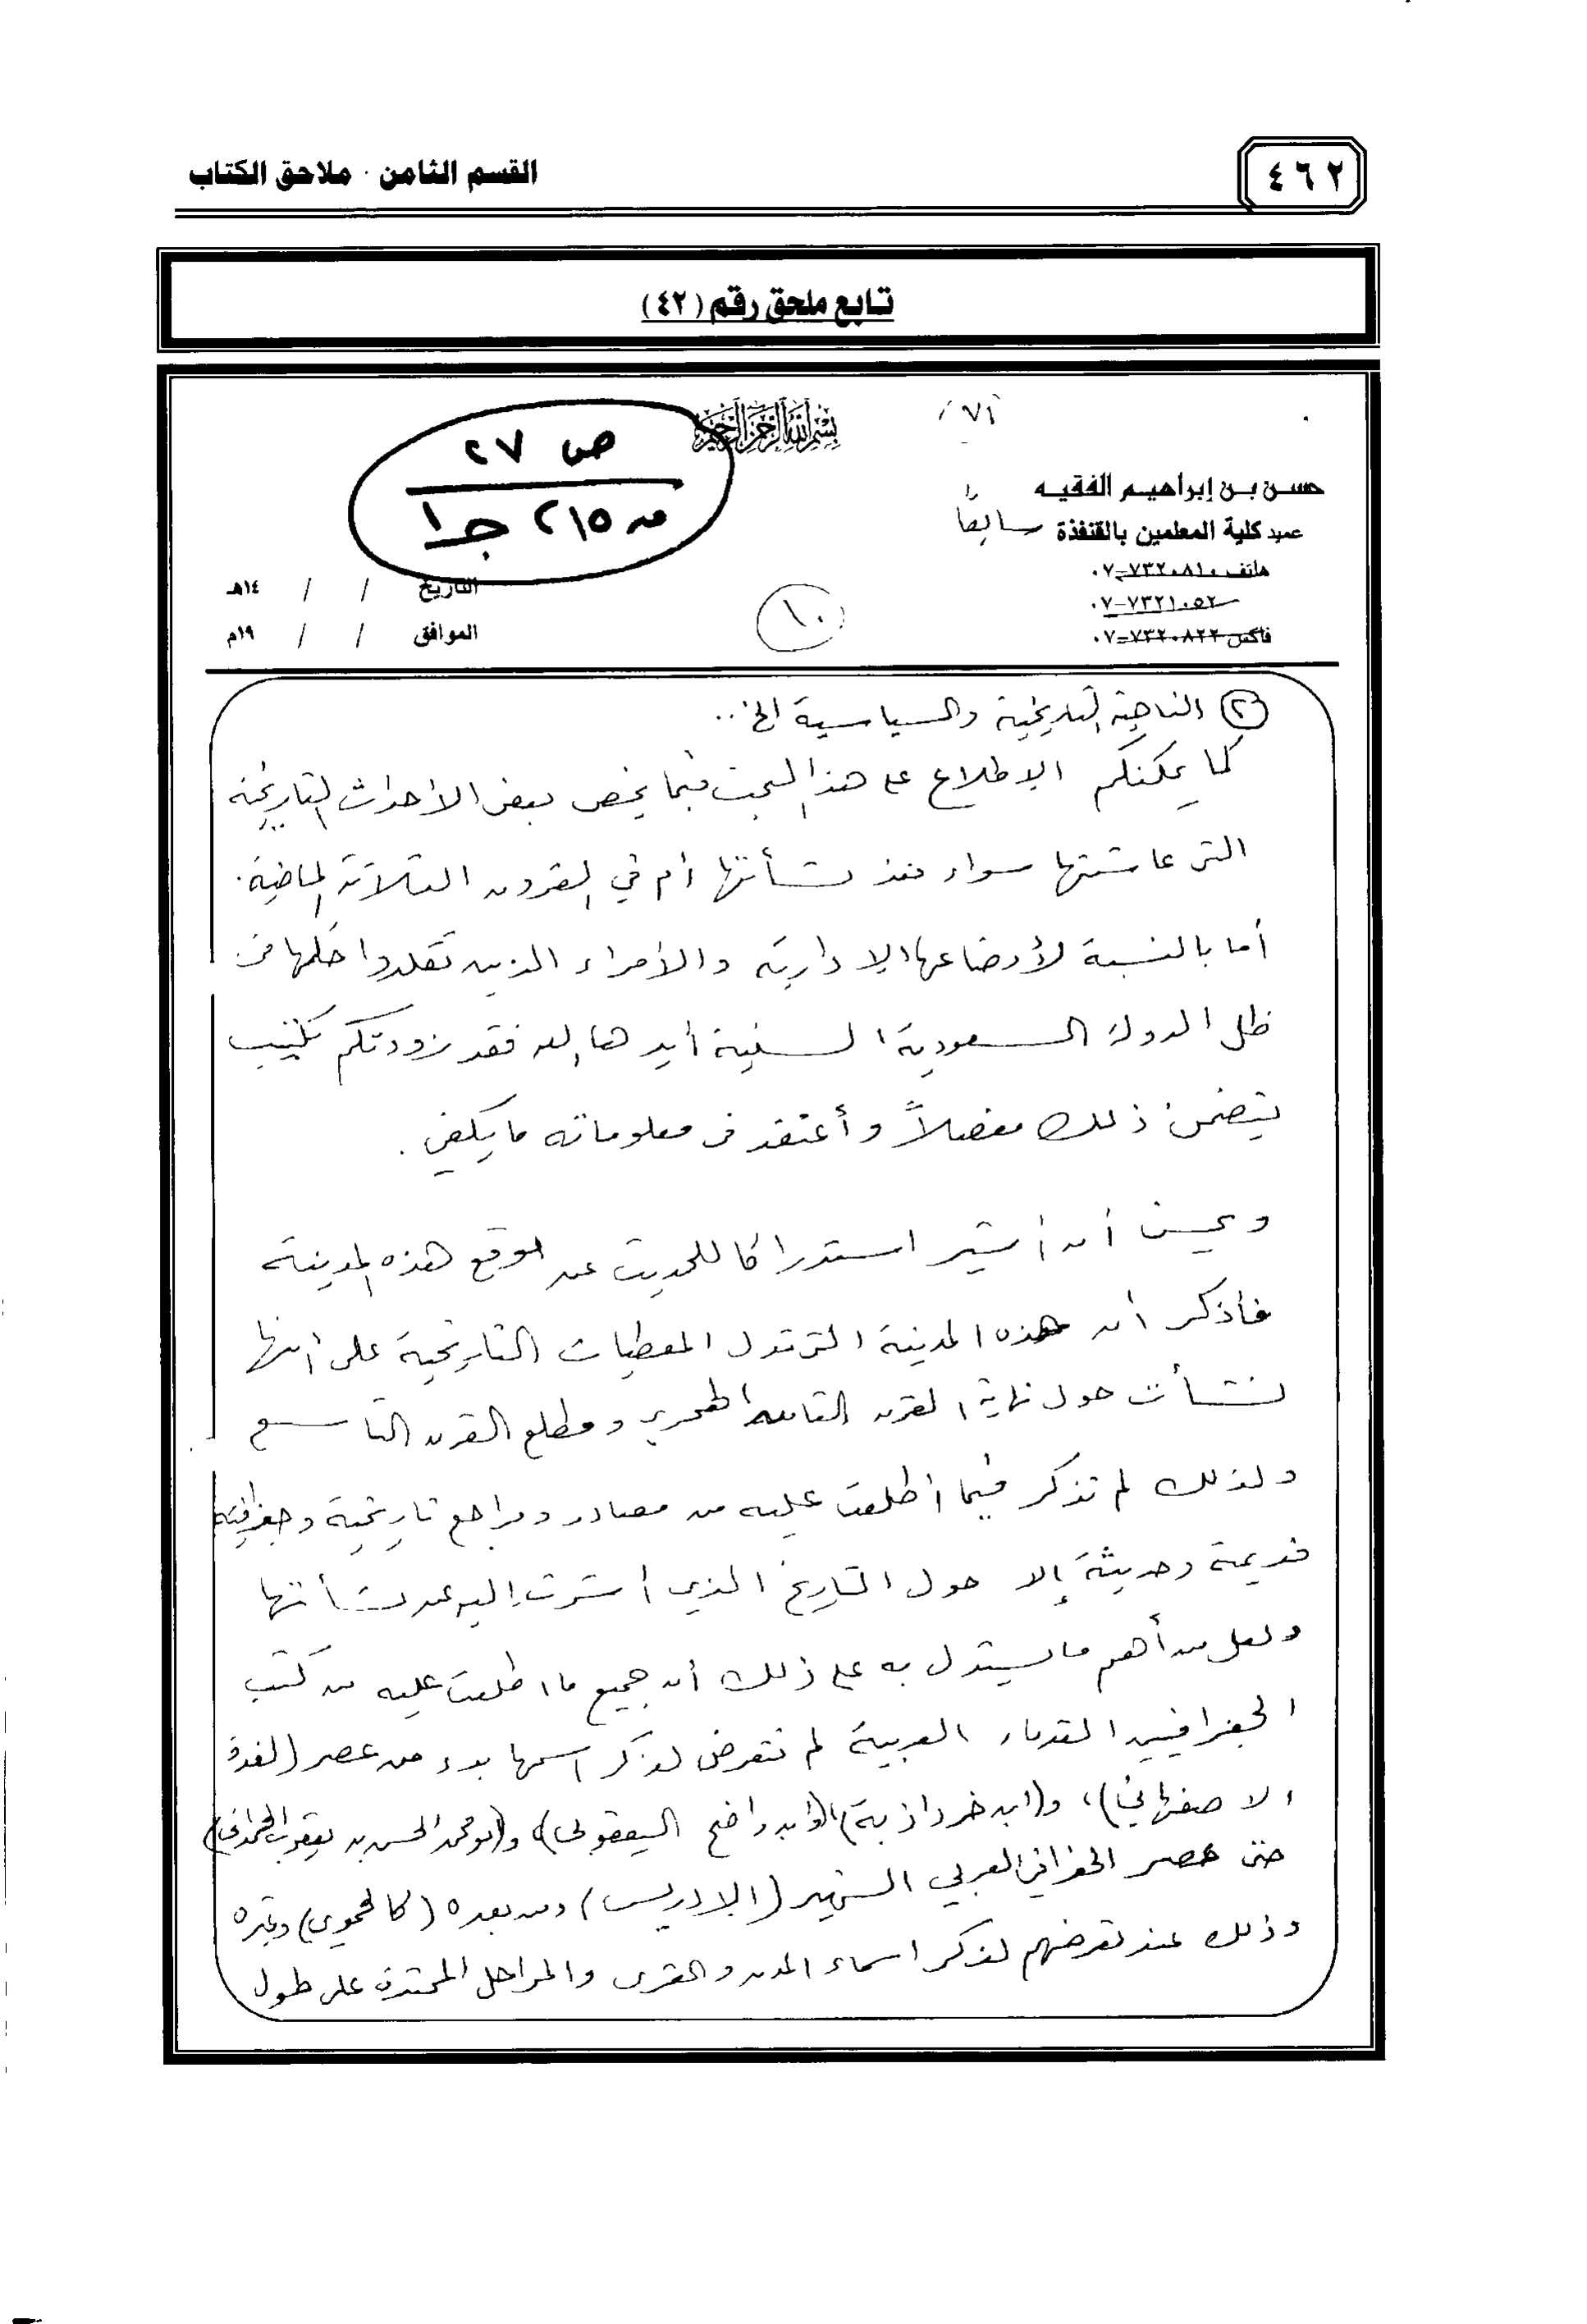 ٤٦٢
القسم الثامن · ملاحق الكتاب
تابع ملحق رقم (٤٢)
بسم الله الرحمن الرحيم
ص ٢٧
من ٢١٥ جـ١
حسن بن إبراهيم الفقيه
عميد كلية المعلمين بالقنفذة سابقاً
هاتف ٧٣٢٠٨١٠-٠٧
٧٣٢١٠٥٢-٠٧
فاكس ٧٣٢٠٨٢٢-٠٧
التاريخ / / ١٤هـ
الموافق / / ١٩م
١٠
(٢) الناحية التاريخية والسياسية الخ ..
كما يمكنكم الإطلاع على هذا البحث فيما يخص بعض الأحداث التاريخية
التي عاشتها سواء منذ نشأتها أم في القرون الثلاثة الماضية.
أما بالنسبة لأوضاعها الإدارية والأمراء الذين تقلدوا حكمها في
ظل الدولة السعودية السنية أيدها الله فقد زودتكم بكتيب
يتضمن ذلك مفصلاً وأعتقد في معلوماته ما يكفي .
ويحسن أن أشير استدراكا للحديث عن موقع هذه المدينة
فأذكر أن هذه المدينة التي تدل المعطيات التاريخية على أنها
نشأت حول نهاية القرن الثامن الهجري ومطلع القرن التاسع
ولذلك لم تذكر فيما أطلعت عليه من مصادر ومراجع تاريخية وجغرافية
قديمة وحديثة إلا حول التاريخ الذي أشرت إليه عند نشأتها
ولعل من أهم ما يستدل به على ذلك أن جميع ما اطلعت عليه من كتب
الجغرافيين القدماء العربية لم تتعرض لذكر اسمها بدء من عصر (لغدة
الاصفهاني)، و(ابن خرداذبة)، (وابن واضح اليعقوبي) و(أبو محمد الحسن بن يعقوب الهمداني)
حتى عصر الجغرافي العربي الشهير (الإدريسي) ومن بعده (كالحموي) وغيره
وذلك عند تعرضهم لذكر اسماء المدن والقرى والمراحل الممتدة على طول